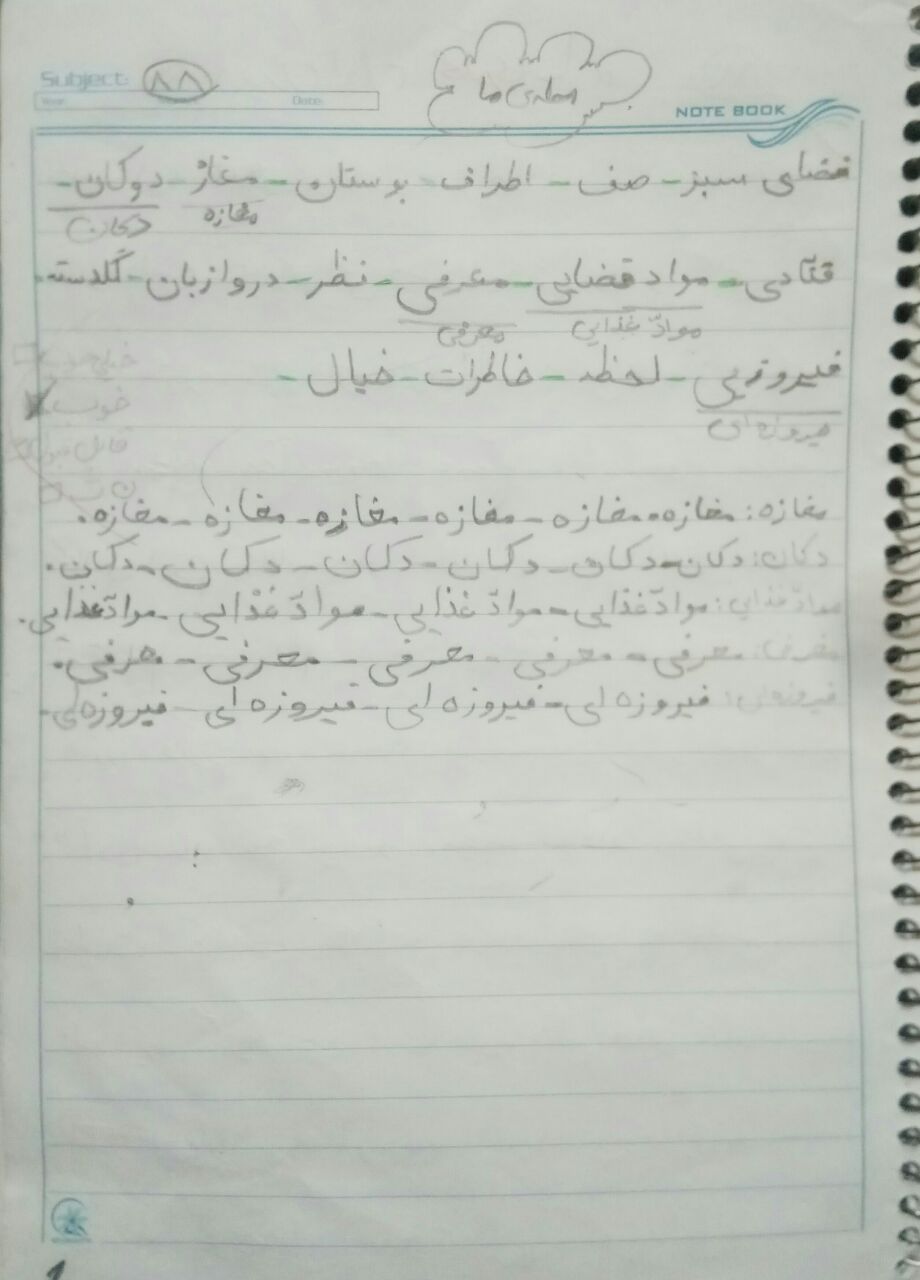 Subject: ۸۸
Year: Date:
محله‌ی ما
NOTE BOOK
فضای سبز - صف - اطراف - بوستان - مغاز - دوکان -
مغازه دکان
قنّادی - مواد قضایی - معرفی - نظر - دروازبان - گلدسته -
موادّ غذایی معرفی
فیروزیی - لحظه - خاطرات - خیال -
خیلی خوب
خوب
فیروزه ای
قابل قبول
ن ت
مغازه: مغازه - مغازه - مغازه - مغازه - مغازه - مغازه.
دکان: دکان - دکان - دکان - دکان - دکان - دکان.
موادّ غذایی: موادّ غذایی - موادّ غذایی - موادّ غذایی - موادّ غذایی.
معرفی: معرفی - معرفی - معرفی - معرفی - معرفی.
فیروزه‌ای: فیروزه ای - فیروزه ای - فیروزه ای - فیروزه‌ای -